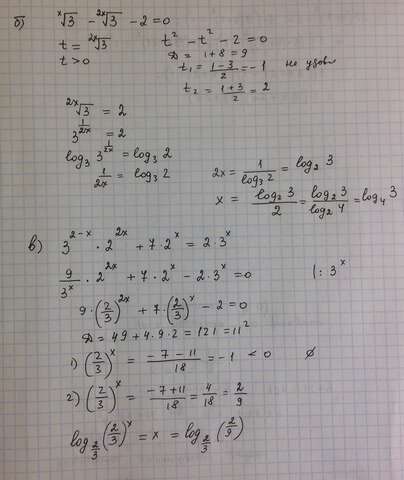 б) ˣ√3 - ²ˣ√3 - 2 = 0
t = ²ˣ√3 t² - t² - 2 = 0
t > 0 D = 1+8 = 9
t₁ = (1-3)/2 = -1 не удовл
t₂ = (1+3)/2 = 2
²ˣ√3 = 2
3^(1/2x) = 2
log₃ 3^(1/2x) = log₃ 2
1/2x = log₃ 2 2x = 1/log₃ 2 = log₂ 3
x = log₂ 3/2 = log₂ 3/log₂ 4 = log₄ 3
в) 3^(2-x) · 2^(2x) + 7 · 2^x = 2 · 3^x
9/3^x · 2^(2x) + 7 · 2^x - 2 · 3^x = 0 |: 3^x
9 · (2/3)^(2x) + 7 · (2/3)^x - 2 = 0
D = 49 + 4 · 9 · 2 = 121 = 11²
1) (2/3)^x = (-7-11)/18 = -1 < 0 ∅
2) (2/3)^x = (-7+11)/18 = 4/18 = 2/9
log_(2/3) (2/3)^x = x = log_(2/3) (2/9)